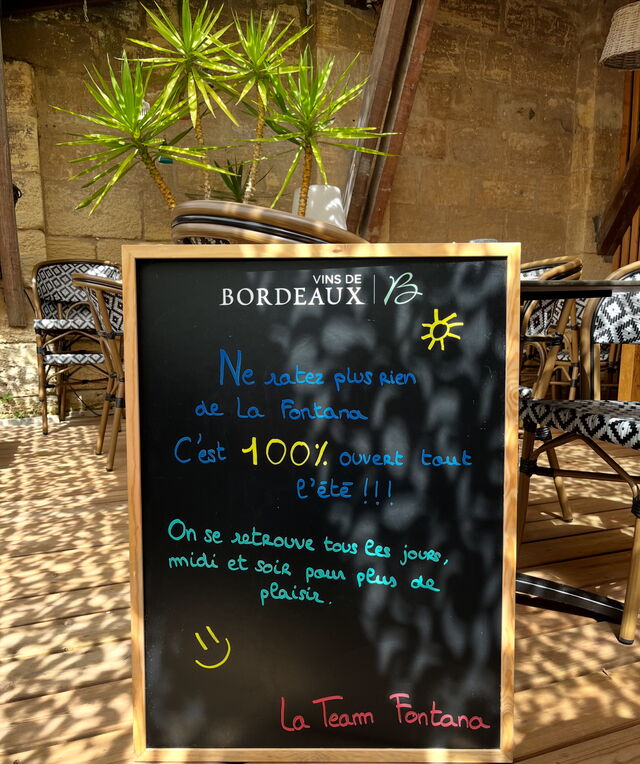 VINS DE
BORDEAUX B
Ne ratez plus rien
de La Fontana
C'est 100% ouvert tout
l'été !!!
On se retrouve tous les jours,
midi et soir pour plus de
plaisir.
La Team Fontana